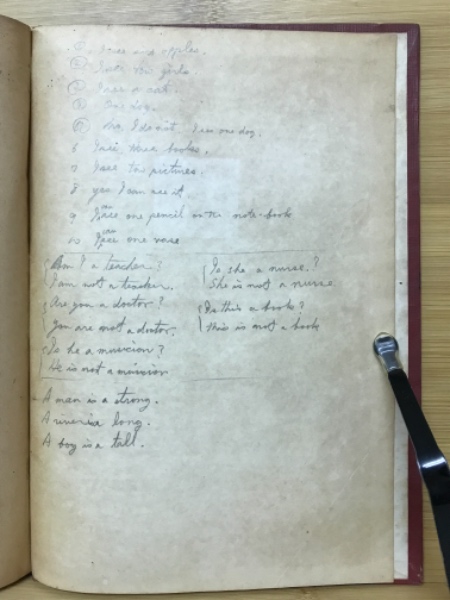 ① I see one apples.
② I see ten girls.
③ I see a cat.
④ One dog.
⑤ No, I do not. I see one dog.
6 I see three books.
7 I see two pictures.
8 yes I can see it
9 I can see one pencil on the note-book
10 I can see one vase
Am I a teacher?
I am not a teacher.
Are you a doctor?
You are not a doctor.
Is he a musician?
He is not a
Is she a nurse?
She is not a nurse
Is this a book?
this is not a book
A man is a strong.
A river is long.
A boy is a tall.